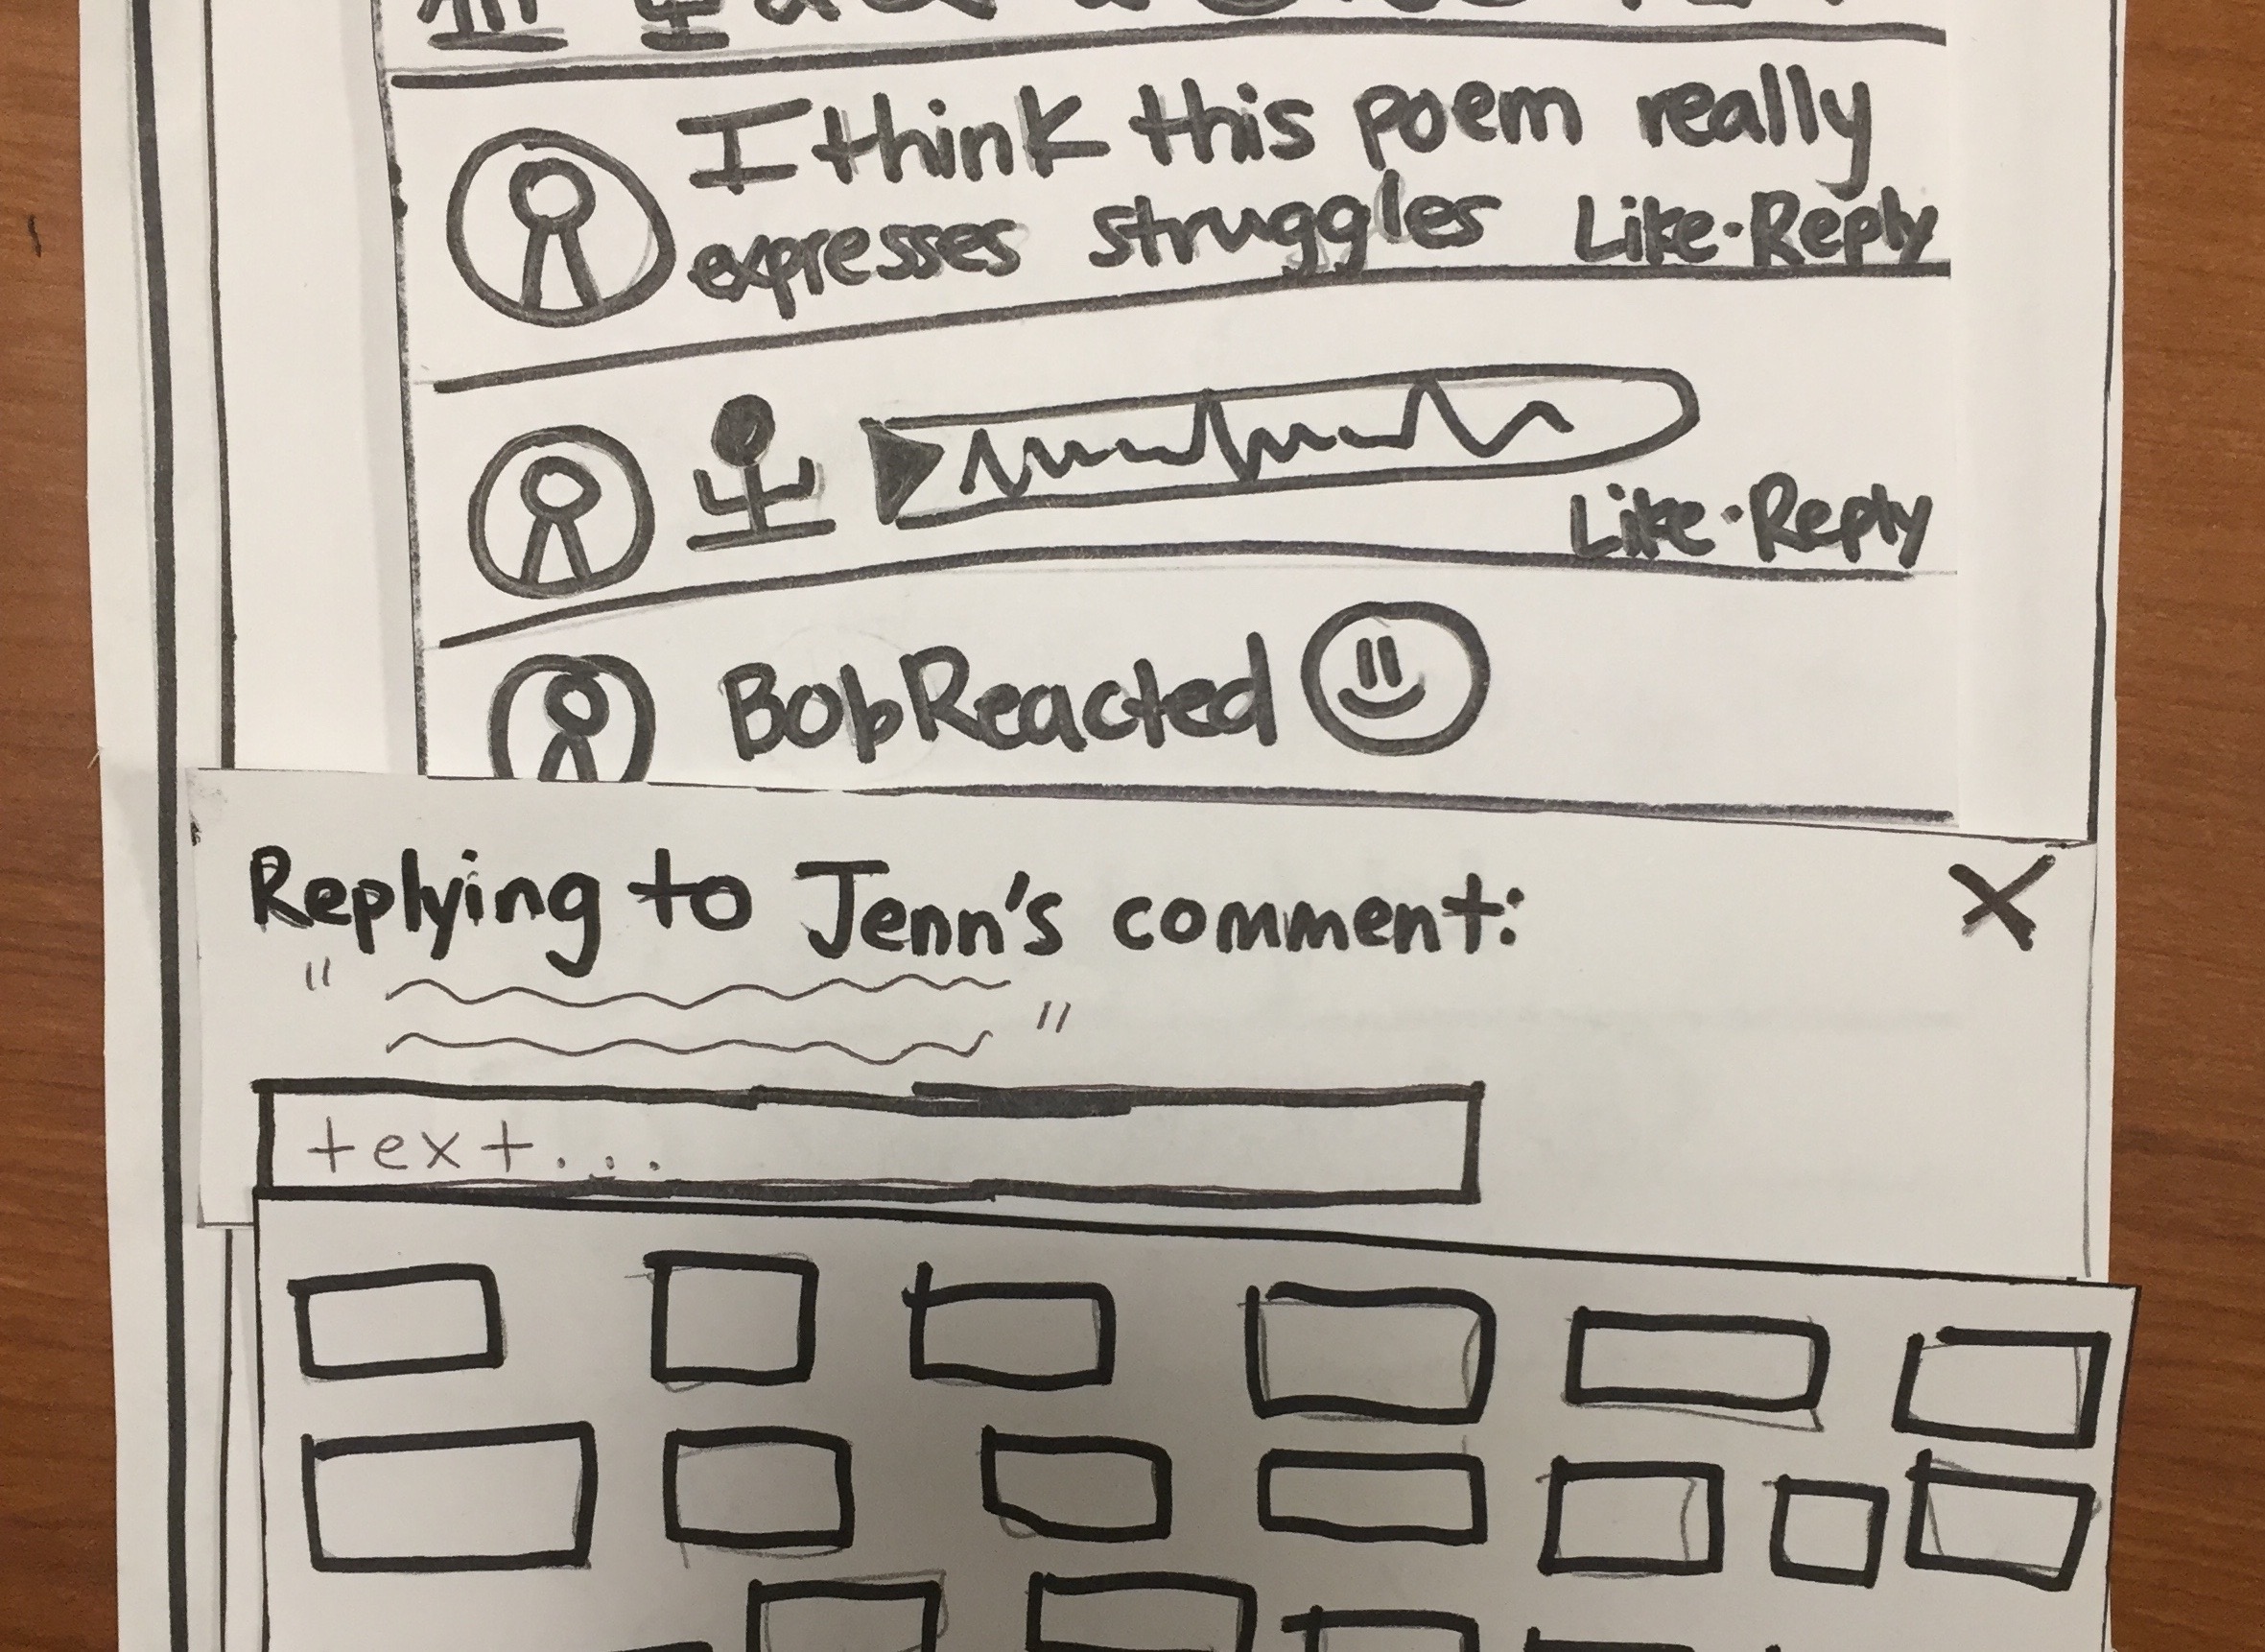 I think this poem really
expresses struggles Like·Reply
Like·Reply
Bob Reacted
Replying to Jenn's comment:
" "
text...